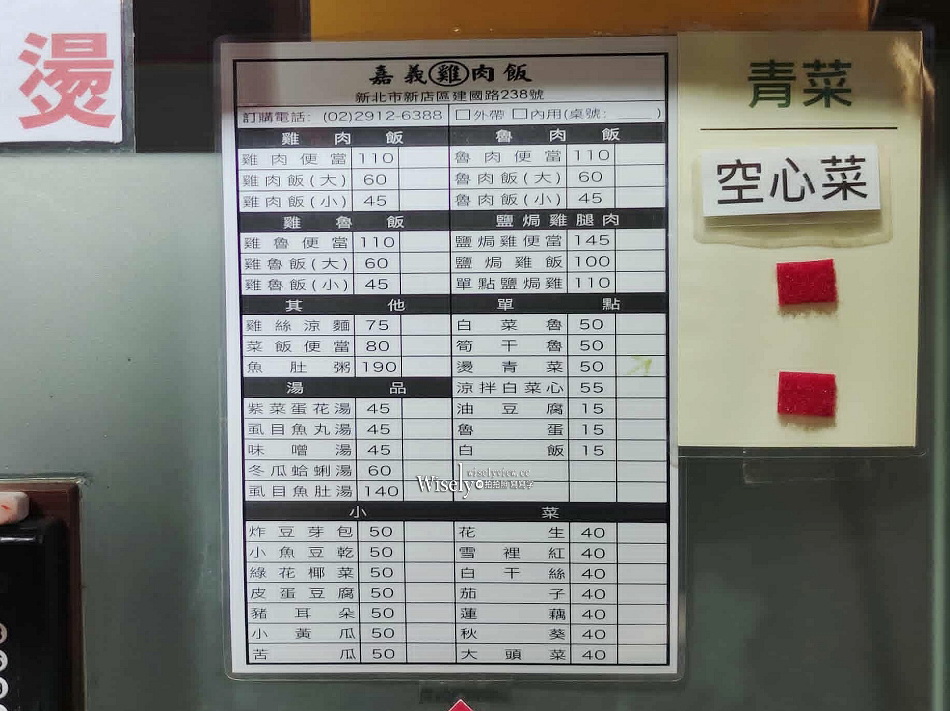 燙
嘉義雞肉飯
新北市新店區建國路238號
訂購電話: (02)2912-6388 □外帶 □內用(桌號:_____)
雞肉飯 魯肉飯
雞肉便當 110 魯肉便當 110
雞肉飯(大) 60 魯肉飯(大) 60
雞肉飯(小) 45 魯肉飯(小) 45
雞魯飯 鹽焗雞腿肉
雞魯便當 110 鹽焗雞便當 145
雞魯飯(大) 60 鹽焗雞飯 100
雞魯飯(小) 45 單點鹽焗雞 110
其他 單點
雞絲涼麵 75 白菜魯 50
菜飯便當 80 筍干魯 50
魚肚粥 190 燙青菜 50
湯品 涼拌白菜心 55
紫菜蛋花湯 45 油豆腐 15
虱目魚丸湯 45 魯蛋 15
味噌湯 45 白飯 15
冬瓜蛤蜊湯 60
虱目魚肚湯 140
小菜
炸豆芽包 50 花生 40
小魚豆乾 50 雪裡紅 40
綠花椰菜 50 白干絲 40
皮蛋豆腐 50 茄子 40
豬耳朵 50 蓮藕 40
小黃瓜 50 秋葵 40
苦瓜 50 大頭菜 40
青菜
空心菜
wiselyview.cc
Wisely